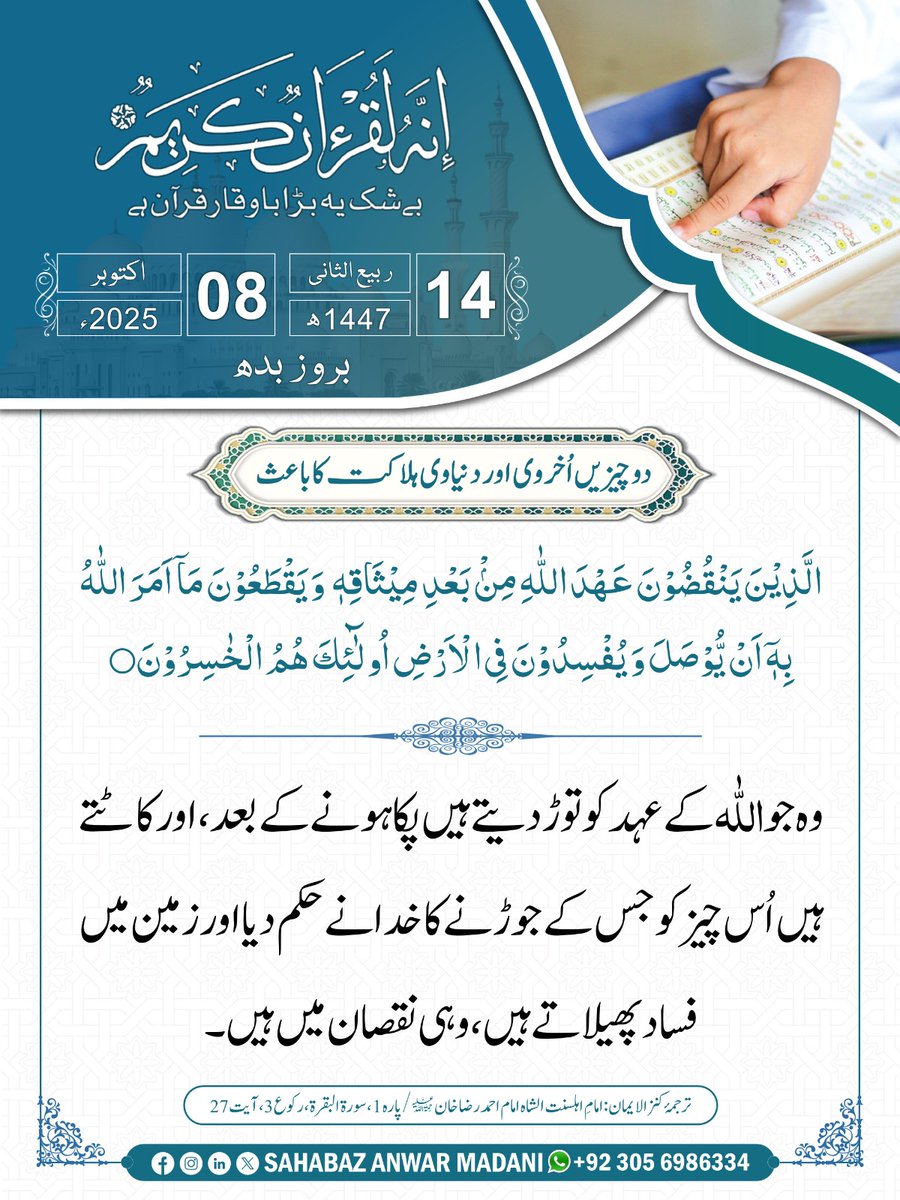 اِنَّهٗ لَقُرْءَانٌ كَرِيْمٌ
بے شک یہ بڑا باوقار قرآن ہے
14 ربیع الثانی 1447ھ 08 اکتوبر 2025ء
بروز بدھ
دو چیزیں اُخروی اور دنیاوی ہلاکت کا باعث
الَّذِیْنَ یَنْقُضُوْنَ عَهْدَ اللّٰهِ مِنْۢ بَعْدِ مِیْثَاقِهٖ وَ یَقْطَعُوْنَ مَاۤ اَمَرَ اللّٰهُ
بِهٖۤ اَنْ یُّوْصَلَ وَ یُفْسِدُوْنَ فِی الْاَرْضِ اُولٰٓىِٕكَ هُمُ الْخٰسِرُوْنَ○
وہ جو اللہ کے عہد کو توڑ دیتے ہیں پکا ہونے کے بعد، اور کاٹتے
ہیں اُس چیز کو جس کے جوڑنے کا خدا نے حکم دیا اور زمین میں
فساد پھیلاتے ہیں، وہی نقصان میں ہیں۔
ترجمۂ کنزالایمان: امامِ اہلسنت الشاہ امام احمد رضا خان / پارہ 1، سورۃ البقرۃ، رکوع 3، آیت 27
SAHABAZ ANWAR MADANI +92 305 6986334